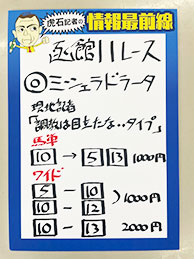 虎石記者の
情報最前線
函館11レース
◎ミシェラドラータ
現地記者
「調教は目立たな‥タイプ」
馬単
10 → 5 13 1000円
ワイド
5 - 10
10 - 12 ) 1000円
10 - 13 2000円